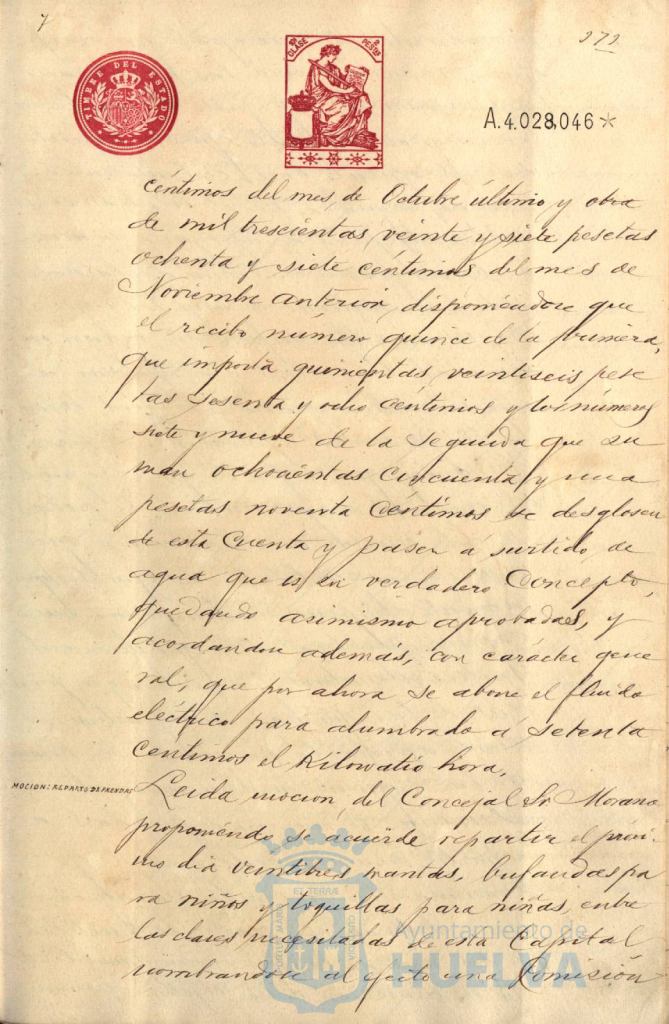 7
272
TIMBRE DEL ESTADO
10ª CLASE 2 PESTAS
A.4.028,046*
céntimos del mes de Octubre último y otra
de mil trescientas veinte y siete pesetas
ochenta y siete céntimos del mes de
Noviembre anterior, disponiendose que
el recibo número quince de la primera,
que importa quinientas veintiseis pese
tas sesenta y ocho céntimos y los números
siete y nueve de la segunda que su
man ochocientas cincuenta y una
pesetas noventa céntimos se desglosen
de esta cuenta y pasen á surtido de
agua que es su verdadero concepto,
quedando asimismo aprobadas, y
acordandose además, con carácter gene
ral, que por ahora se abone el fluido
eléctrico para alumbrado á setenta
centimos el Kilowatio hora.
MOCION: REPARTO DE PRENDAS
Leida mocion del Concejal Sr Morano
proponiendo se acuerde repartir el próxi-
mo dia veintitres mantas, bufandas pa
ra niños y toquillas para niñas, entre
las clases necesitadas de esta Capital
nombrandose al efecto una Comisión
Ayuntamiento de
HUELVA